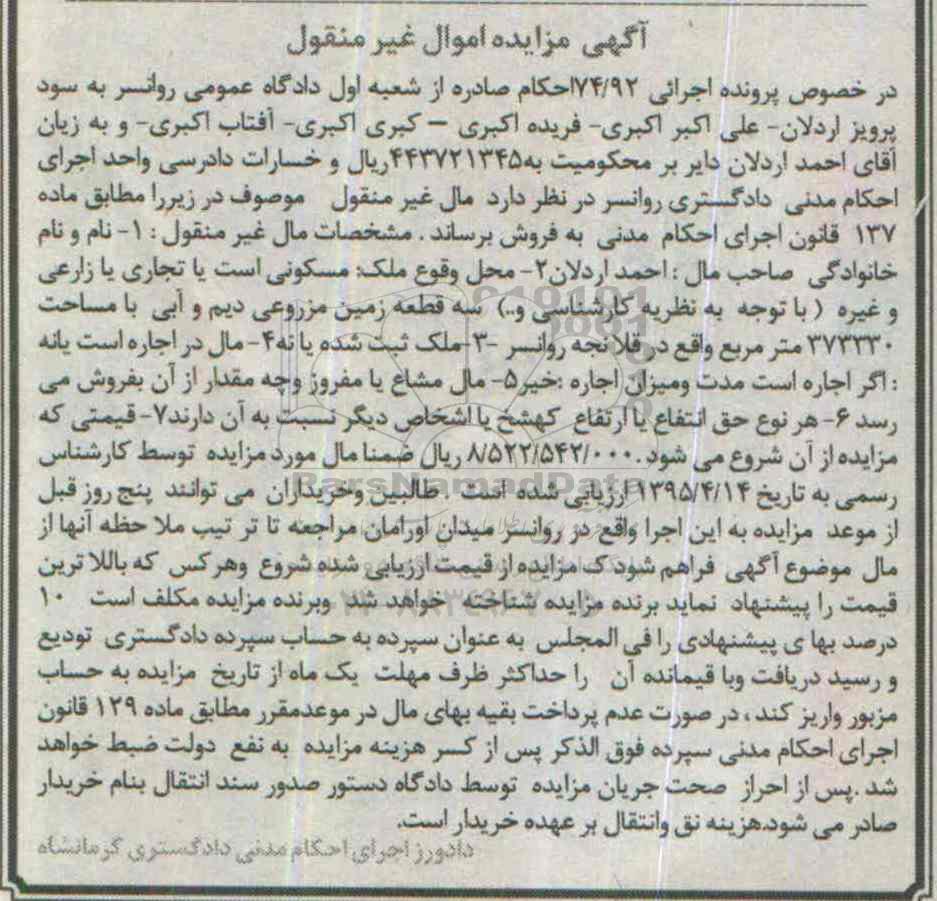 آگهی مزایده اموال غیر منقول
در خصوص پرونده اجرائی ۷۴/۹۲احکام صادره از شعبه اول دادگاه عمومی روانسر به سود
پرویز اردلان- علی اکبر اکبری- فریده اکبری – کبری اکبری- آفتاب اکبری- و به زیان
آقای احمد اردلان دایر بر محکومیت به۴۴۳۷۲۱۳۴۵ریال و خسارات دادرسی واحد اجرای
احکام مدنی دادگستری روانسر در نظر دارد مال غیر منقول موصوف در زیررا مطابق ماده
۱۳۷ قانون اجرای احکام مدنی به فروش برساند . مشخصات مال غیر منقول : ۱- نام و نام
خانوادگی صاحب مال : احمد اردلان۲- محل وقوع ملک: مسکونی است یا تجاری یا زارعی
و غیره ( با توجه به نظریه کارشناسی و..) سه قطعه زمین مزروعی دیم و آبی با مساحت
۳۷۳۳۳۰ متر مربع واقع در قلا نجه روانسر -۳-ملک ثبت شده یا نه۴- مال در اجاره است یانه
: اگر اجاره است مدت ومیزان اجاره :خیر۵- مال مشاع یا مفروز وچه مقدار از آن بفروش می
رسد ۶- هر نوع حق انتفاع یا ارتفاع کهشخ یا اشخاص دیگر نسبت به آن دارند۷- قیمتی که
مزایده از آن شروع می شود . ۸/۵۲۲/۵۴۲/۰۰۰ ریال ضمنا مال مورد مزایده توسط کارشناس
رسمی به تاریخ ۱۳۹۵/۴/۱۴ ارزیابی شده است . طالبین وخریداران می توانند پنج روز قبل
از موعد مزایده به این اجرا واقع در روانسر میدان اورامان مراجعه تا تر تیب ملا حظه آنها از
مال موضوع آگهی فراهم شود ک مزایده از قیمت ارزیابی شده شروع وهرکس که باللا ترین
قیمت را پیشنهاد نماید برنده مزایده شناخته خواهد شد وبرنده مزایده مکلف است ۱۰
درصد بها ی پیشنهادی را فی المجلس به عنوان سپرده به حساب سپرده دادگستری تودیع
و رسید دریافت وبا قیمانده آن را حداکثر ظرف مهلت یک ماه از تاریخ مزایده به حساب
مزبور واریز کند ، در صورت عدم پرداخت بقیه بهای مال در موعدمقرر مطابق ماده ۱۲۹ قانون
اجرای احکام مدنی سپرده فوق الذکر پس از کسر هزینه مزایده به نفع دولت ضبط خواهد
شد .پس از احراز صحت جریان مزایده توسط دادگاه دستور صدور سند انتقال بنام خریدار
صادر می شود.هزینه نق وانتقال بر عهده خریدار است.
دادورز اجرای احکام مدنی دادگستری کرمانشاه
ParsNamadData